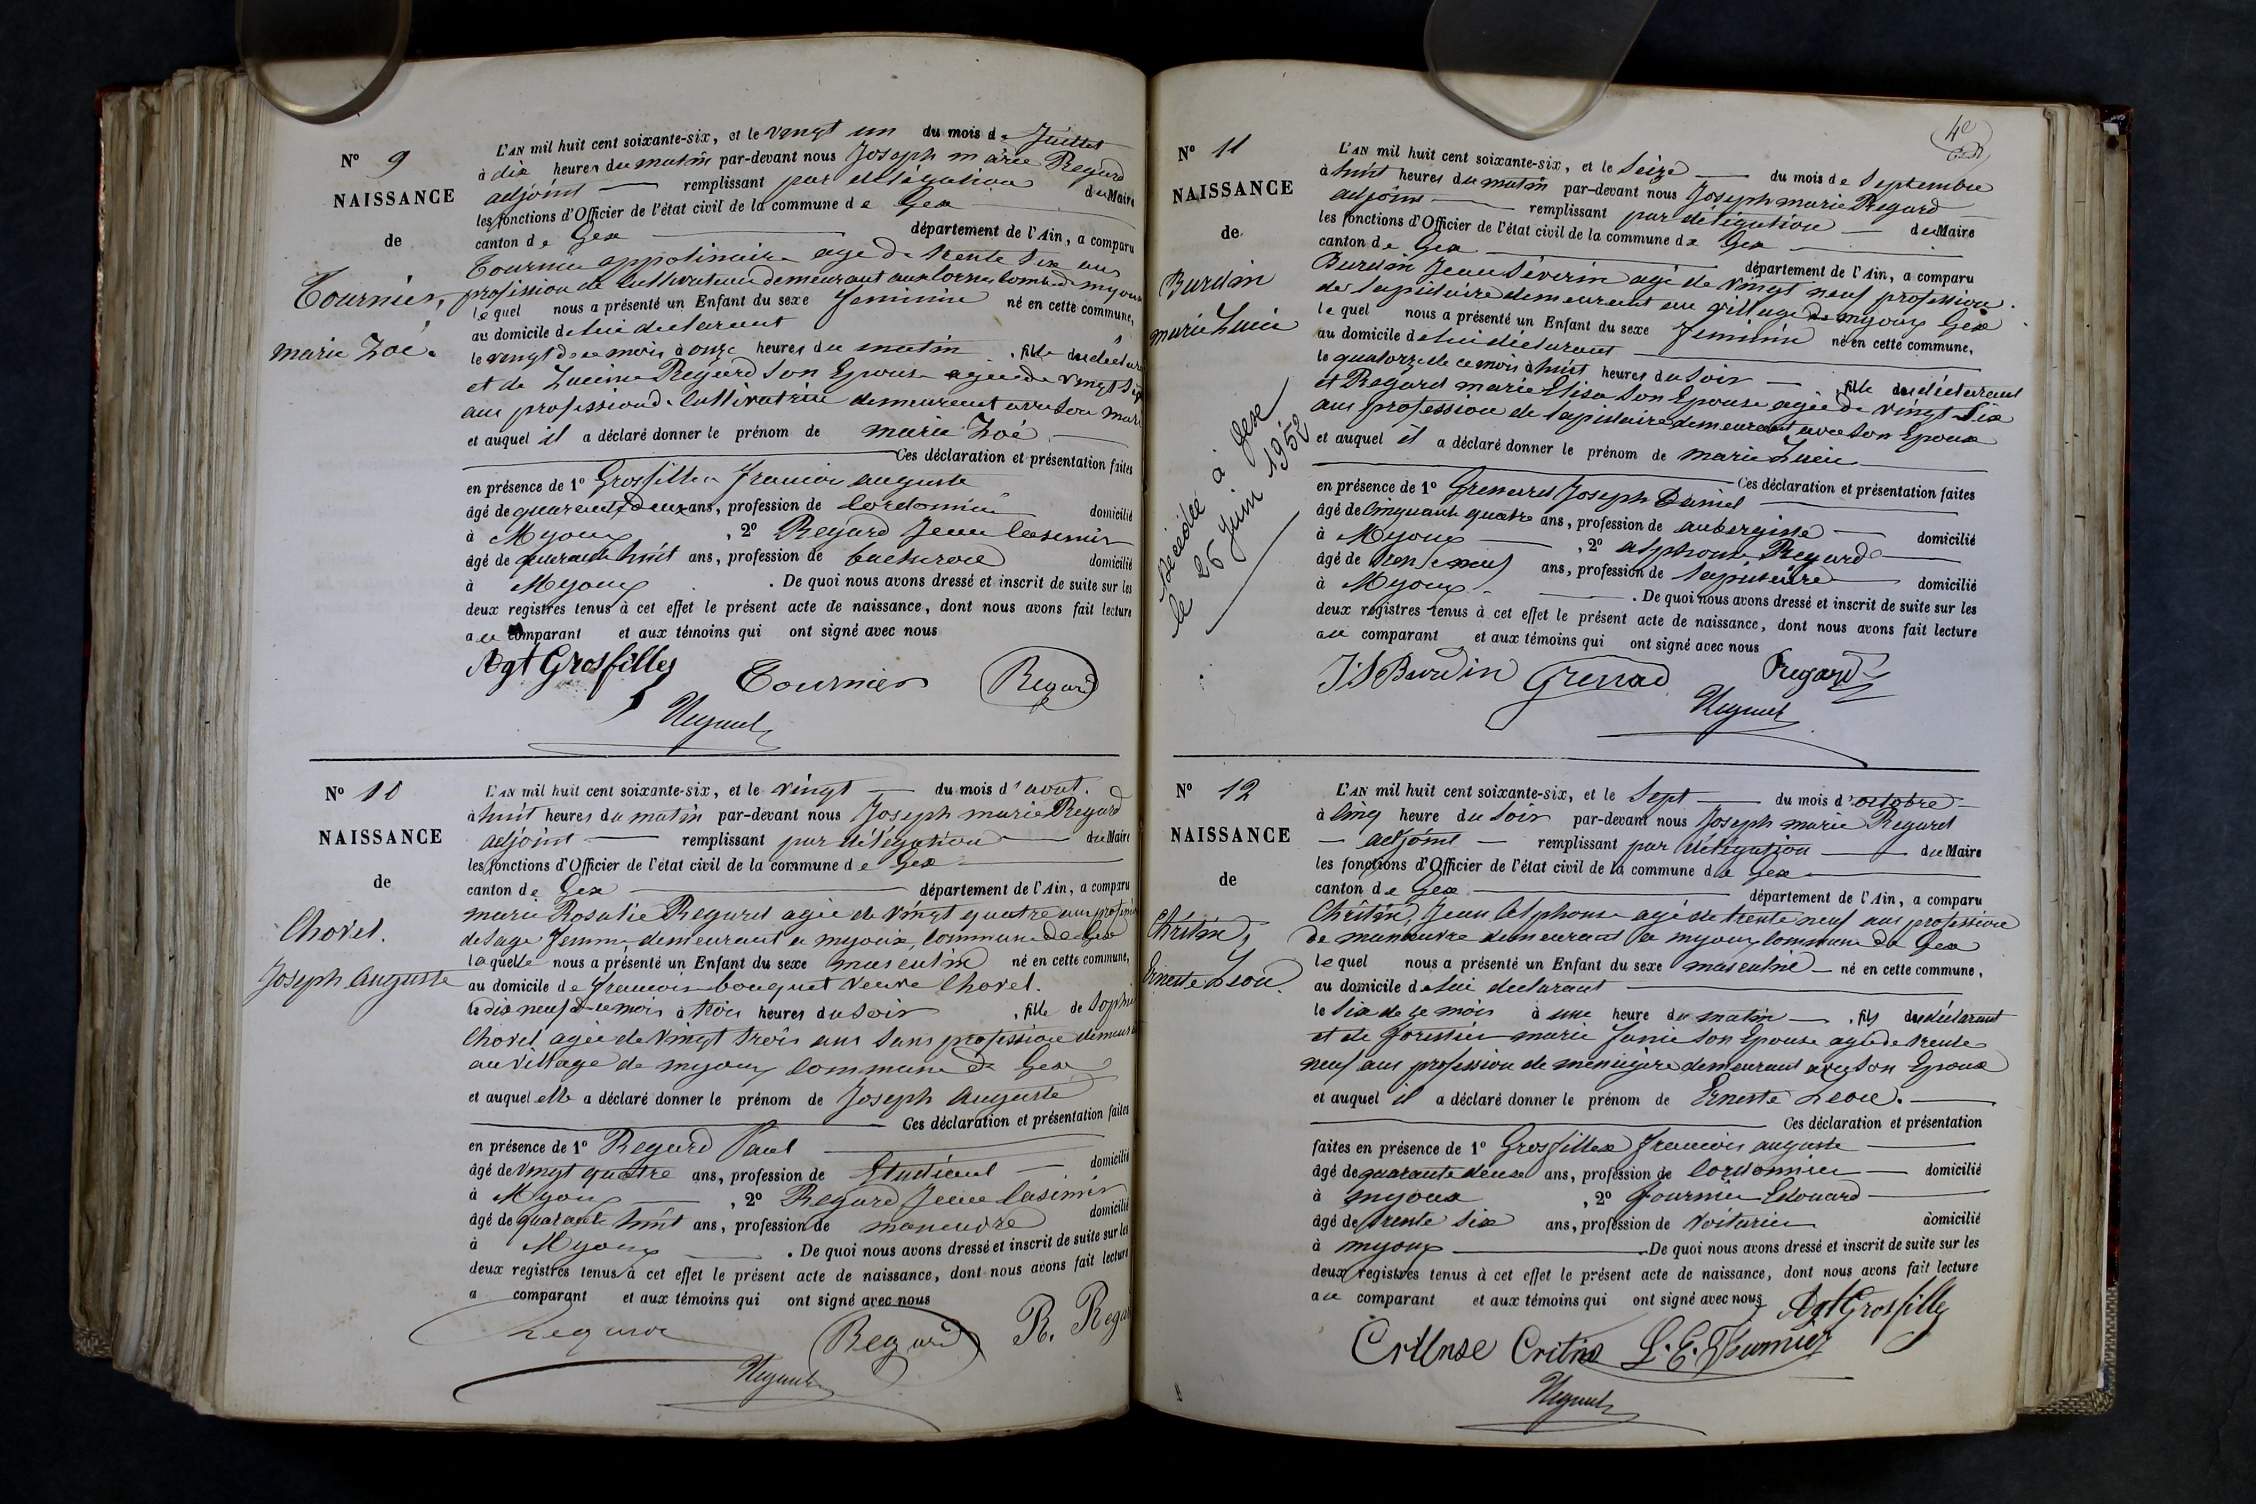 N° 9
NAISSANCE
de
Tournier,
marie Zoé.
L'AN mil huit cent soixante-six, et le vingt un du mois de Juillet
à dix heures du matin par-devant nous Joseph marie Regard
adjoint remplissant par délégation du Maire
les fonctions d'Officier de l'état civil de la commune de Gex
canton de Gex département de l'Ain, a comparu
Tournier appolinaire agé de trente six ans
profession de Cultivateur demeurant aux
lequel nous a présenté un Enfant du sexe feminin né en cette commune,
au domicile de lui declarant
le vingt de ce mois à onze heures du matin, fille du
et de Regard son Epouse agée de vingt
ans profession de Cultivatrice demeurant avec son mari
et auquel il a déclaré donner le prénom de marie Zoé
Ces déclaration et présentation faites
en présence de 1° Grosfillex francois auguste
âgé de quarante deux ans, profession de Cordonnier domicilié
à Myoux, 2° Regard Jean Casimir
âgé de quarante huit ans, profession de domicilié
à Myoux. De quoi nous avons dressé et inscrit de suite sur les
deux registres tenus à cet effet le présent acte de naissance, dont nous avons fait lecture
au comparant et aux témoins qui ont signé avec nous
Agt Grosfillex Tournier Regard
N° 10
NAISSANCE
de
Chovet.
Joseph Auguste
L'AN mil huit cent soixante-six, et le vingt du mois d'aout.
à huit heures du matin par-devant nous Joseph marie Regard
adjoint remplissant par délégation du Maire
les fonctions d'Officier de l'état civil de la commune de Gex
canton de Gex département de l'Ain, a comparu
marie Rosalie Regard agée de vingt quatre ans
de sage femme demeurant a myoux, commune de Gex
laquelle nous a présenté un Enfant du sexe masculin né en cette commune,
au domicile de bouquet veuve Chovet.
le dix neuf de ce mois à trois heures du soir, fille de Sophie
Chovet agée de vingt trois ans sans profession
au village de myoux commune de Gex
et auquel elle a déclaré donner le prénom de Joseph Auguste
Ces déclaration et présentation faites
en présence de 1° Regard Paul
âgé de vingt quatre ans, profession de Etudiant domicilié
à Myoux, 2° Regard Jean Casimir
âgé de quarante huit ans, profession de manœuvre domicilié
à Myoux. De quoi nous avons dressé et inscrit de suite sur les
deux registres tenus à cet effet le présent acte de naissance, dont nous avons fait lecture
a comparant et aux témoins qui ont signé avec nous
Regard R. Regard
4e
N° 11
NAISSANCE
de
Burdin
marie Lucie
Décédée à Gex
le 26 Juin 1952
L'AN mil huit cent soixante-six, et le Seize du mois de Septembre
à huit heures du matin par-devant nous Joseph marie Regard
adjoint remplissant par délégation du Maire
les fonctions d'Officier de l'état civil de la commune de Gex
canton de Gex département de l'Ain, a comparu
Burdin Jean Séverin agé de vingt neuf profession
de lapidaire demeurant au village de myoux Gex
lequel nous a présenté un Enfant du sexe feminin né en cette commune,
au domicile de lui déclarant
le quatorze de ce mois à huit heures du soir, fille du déclarant
et Regard marie Elisa son Epouse agée de vingt six
ans profession de lapidaire demeurant avec son Epoux
et auquel il a déclaré donner le prénom de marie Lucie
Ces déclaration et présentation faites
en présence de 1° Grenard Joseph Daniel
âgé de Cinquante quatre ans, profession de aubergiste domicilié
à Myoux, 2° alphonse Regard
âgé de trente neuf ans, profession de lapidaire domicilié
à Myoux. De quoi nous avons dressé et inscrit de suite sur les
deux registres tenus à cet effet le présent acte de naissance, dont nous avons fait lecture
au comparant et aux témoins qui ont signé avec nous
J S Burdin Grenard Regard
N° 12
NAISSANCE
de
Chritin,
Erneste Leon.
L'AN mil huit cent soixante-six, et le Sept du mois d'octobre
à cinq heure du soir par-devant nous Joseph marie Regard
adjoint remplissant par délégation du Maire
les fonctions d'Officier de l'état civil de la commune de Gex
canton de Gex département de l'Ain, a comparu
Chritin, Jean Alphonse agé de trente neuf ans profession
de manœuvre demeurant a myoux commune de Gex
lequel nous a présenté un Enfant du sexe masculin né en cette commune,
au domicile de lui declarant
le six de ce mois à une heure du matin, fils du déclarant
et de forestier marie son Epouse agée de trente
neuf ans profession de menagère demeurant avec son Epoux
et auquel il a déclaré donner le prénom de Erneste Leon.
Ces déclaration et présentation
faites en présence de 1° Grosfillex francois auguste
âgé de quarante deux ans, profession de Cordonnier domicilié
à myoux, 2° fournier Edouard
âgé de trente six ans, profession de voiturier domicilié
à myoux. De quoi nous avons dressé et inscrit de suite sur les
deux registres tenus à cet effet le présent acte de naissance, dont nous avons fait lecture
au comparant et aux témoins qui ont signé avec nous Agt Grosfillex
Critin L. E. Fournier